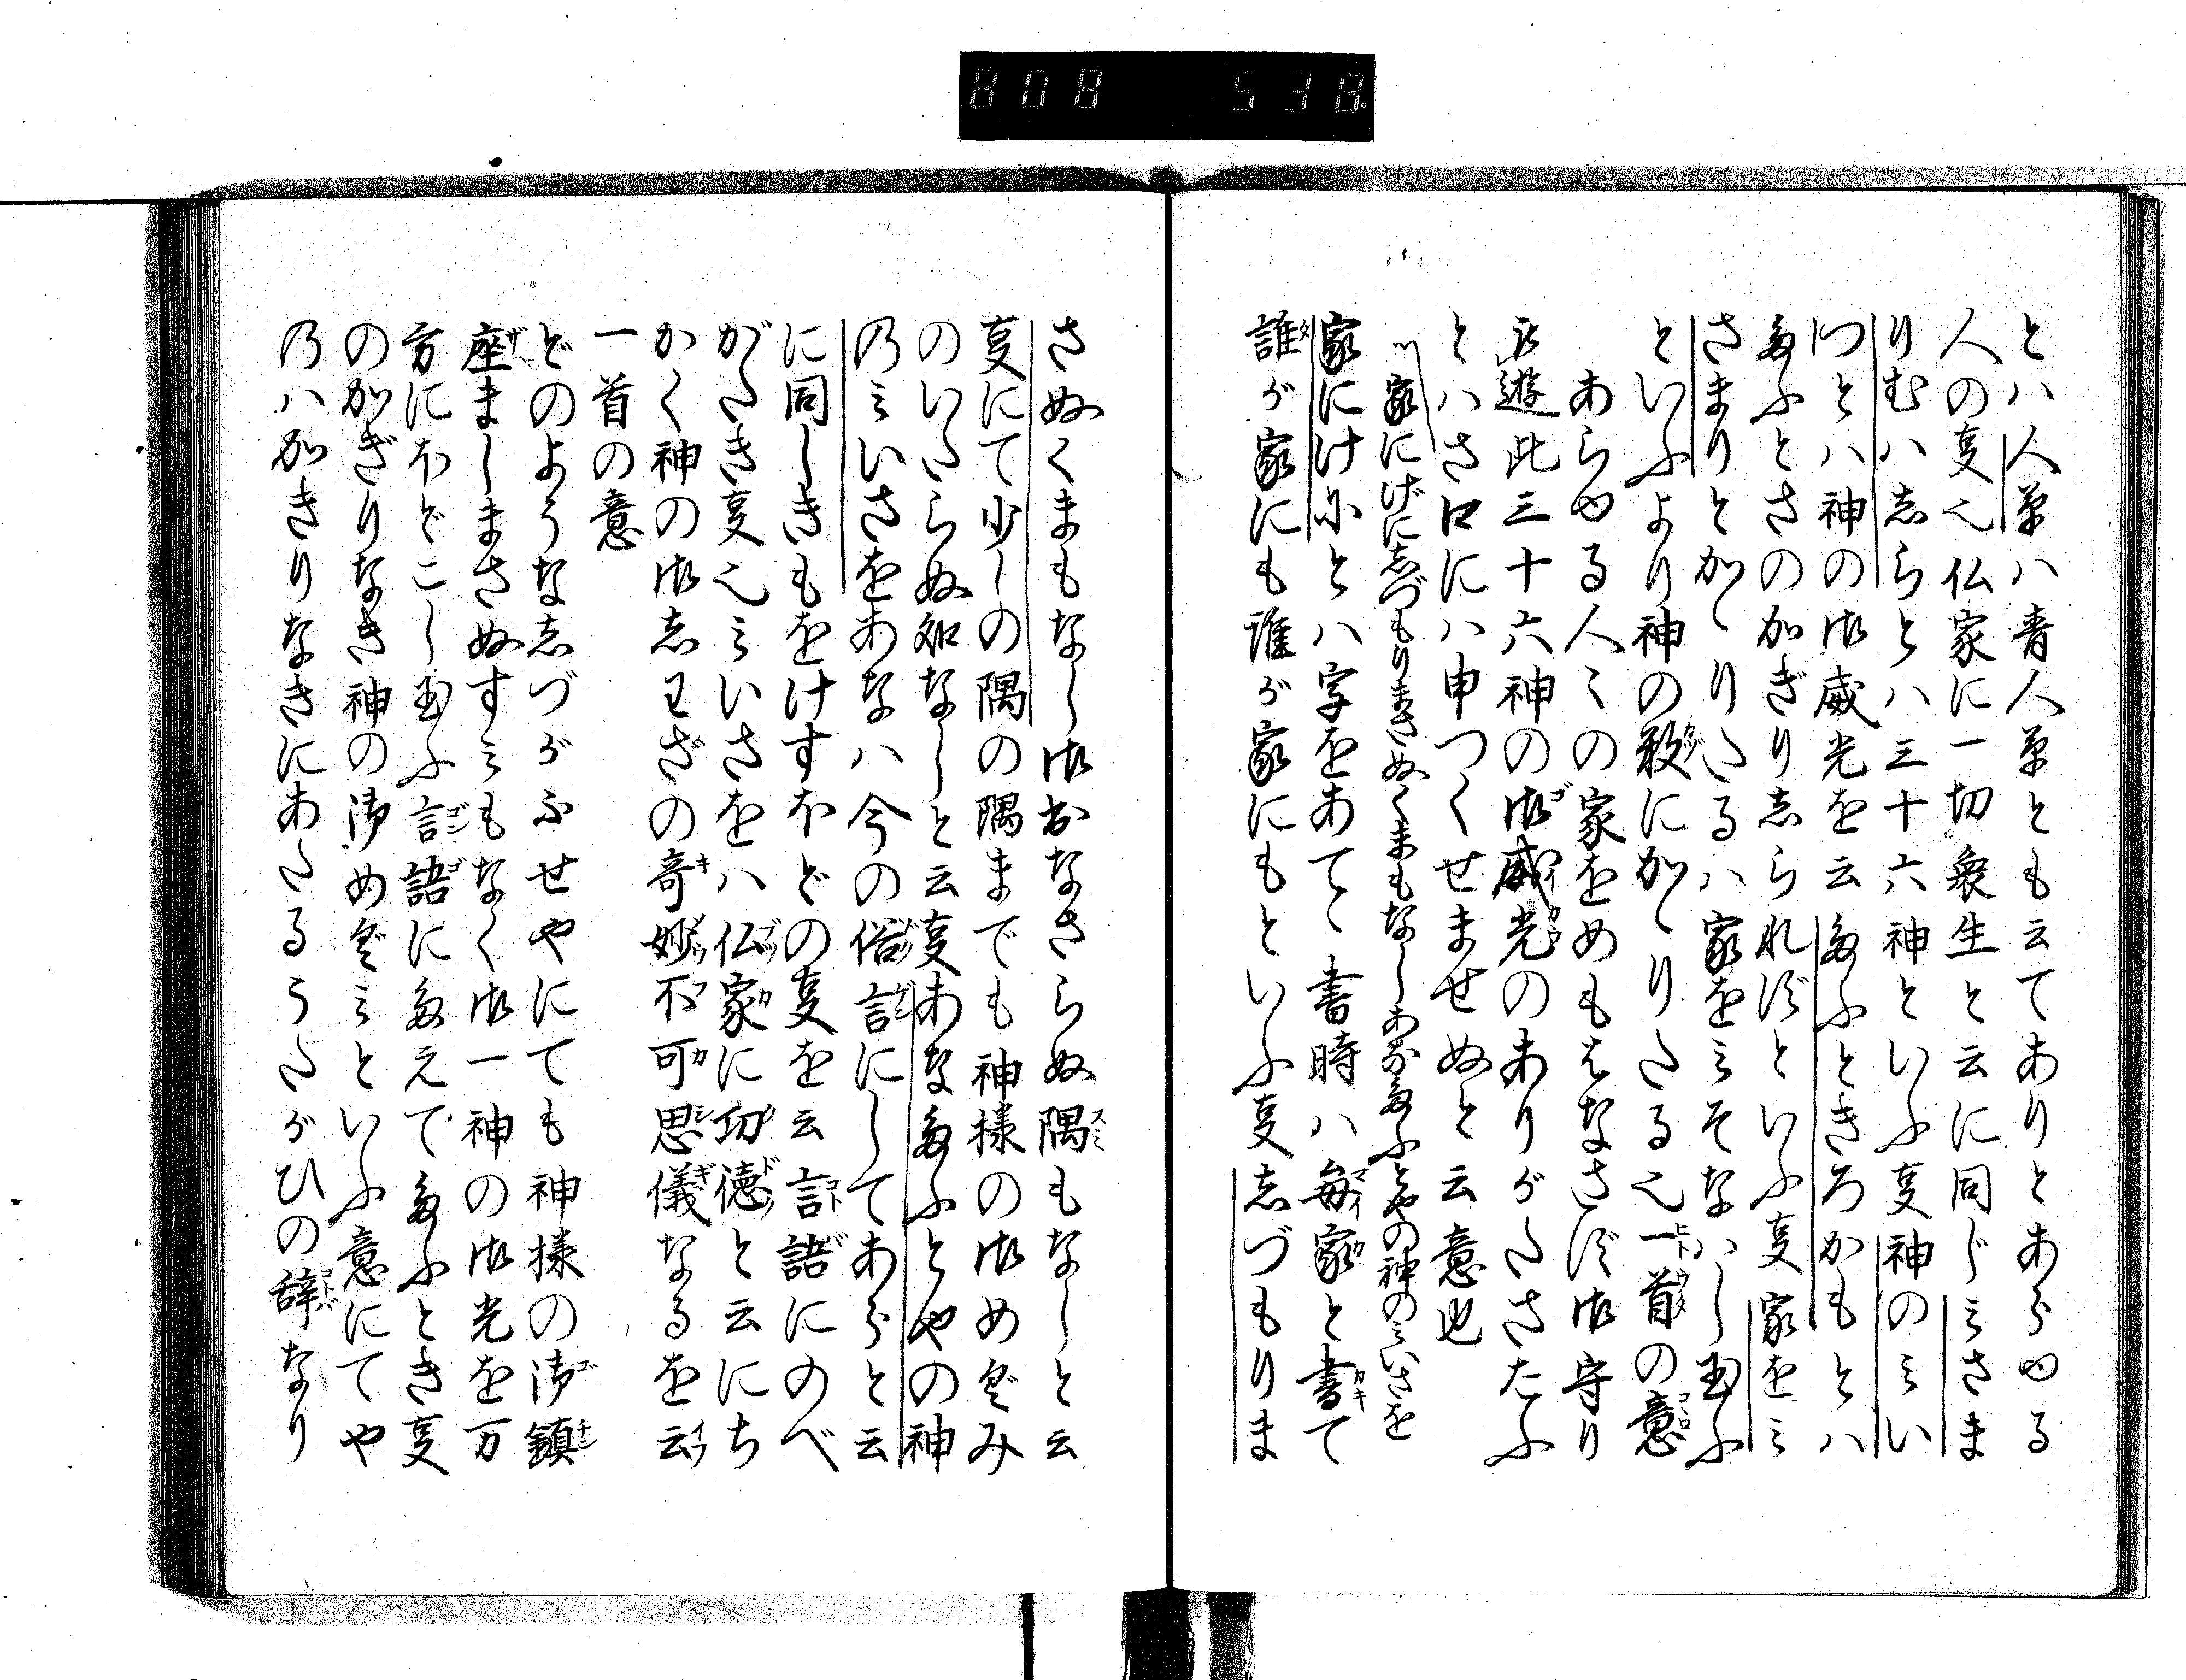 808 538
とハ人草ハ青人草とも云てありとあらゆる
人の叓也仏家に一切衆生と云に同じミさま
りむハ志らとハ三十六神といふ叓神のミい
つとハ神の御威光を云給ふときろかもとハ
給ふとさのかぎり志られずといふ叓家をミ
さまりとかゝりたるハ家をミそなハし玉ふ
といふより神の数にかゝりたる也一首の意
あらゆる人〻の家をめもはなさず御守り
被遊此三十六神の御威光のありがたさたふ
とハさ口にハ申つくせませぬと云意也
家にげに志づもりまさぬくまもなしあな給ふとやの神のミいさを
家にけ尓とハ字をあてゝ書時ハ毎家と書て
誰が家にも誰が家にもといふ叓志づもりま
さぬくまもなし御おなさらぬ隅もなしと云
叓にて少しの隅の隅までも神様の御めぐみ
のいたらぬ処なしと云叓あな給ふとやの神
乃ミいさをあなハ今の俗言にしてあらと云
に同しきもをけすほどの叓を云言語にのべ
がたき叓也ミいさをハ仏家に功徳と云にち
かく神の御志わざの奇妙不可思儀なるを云
一首の意
どのような志づがふせやにても神様の御鎮
座ましまさぬすミもなく御一神の御光を万
方にほどこし玉ふ言語に絶えで給ふとき叓
のかぎりなき神の御めぐミといふ意にてや
乃ハかきりなきにあたるうたがひの辞なり